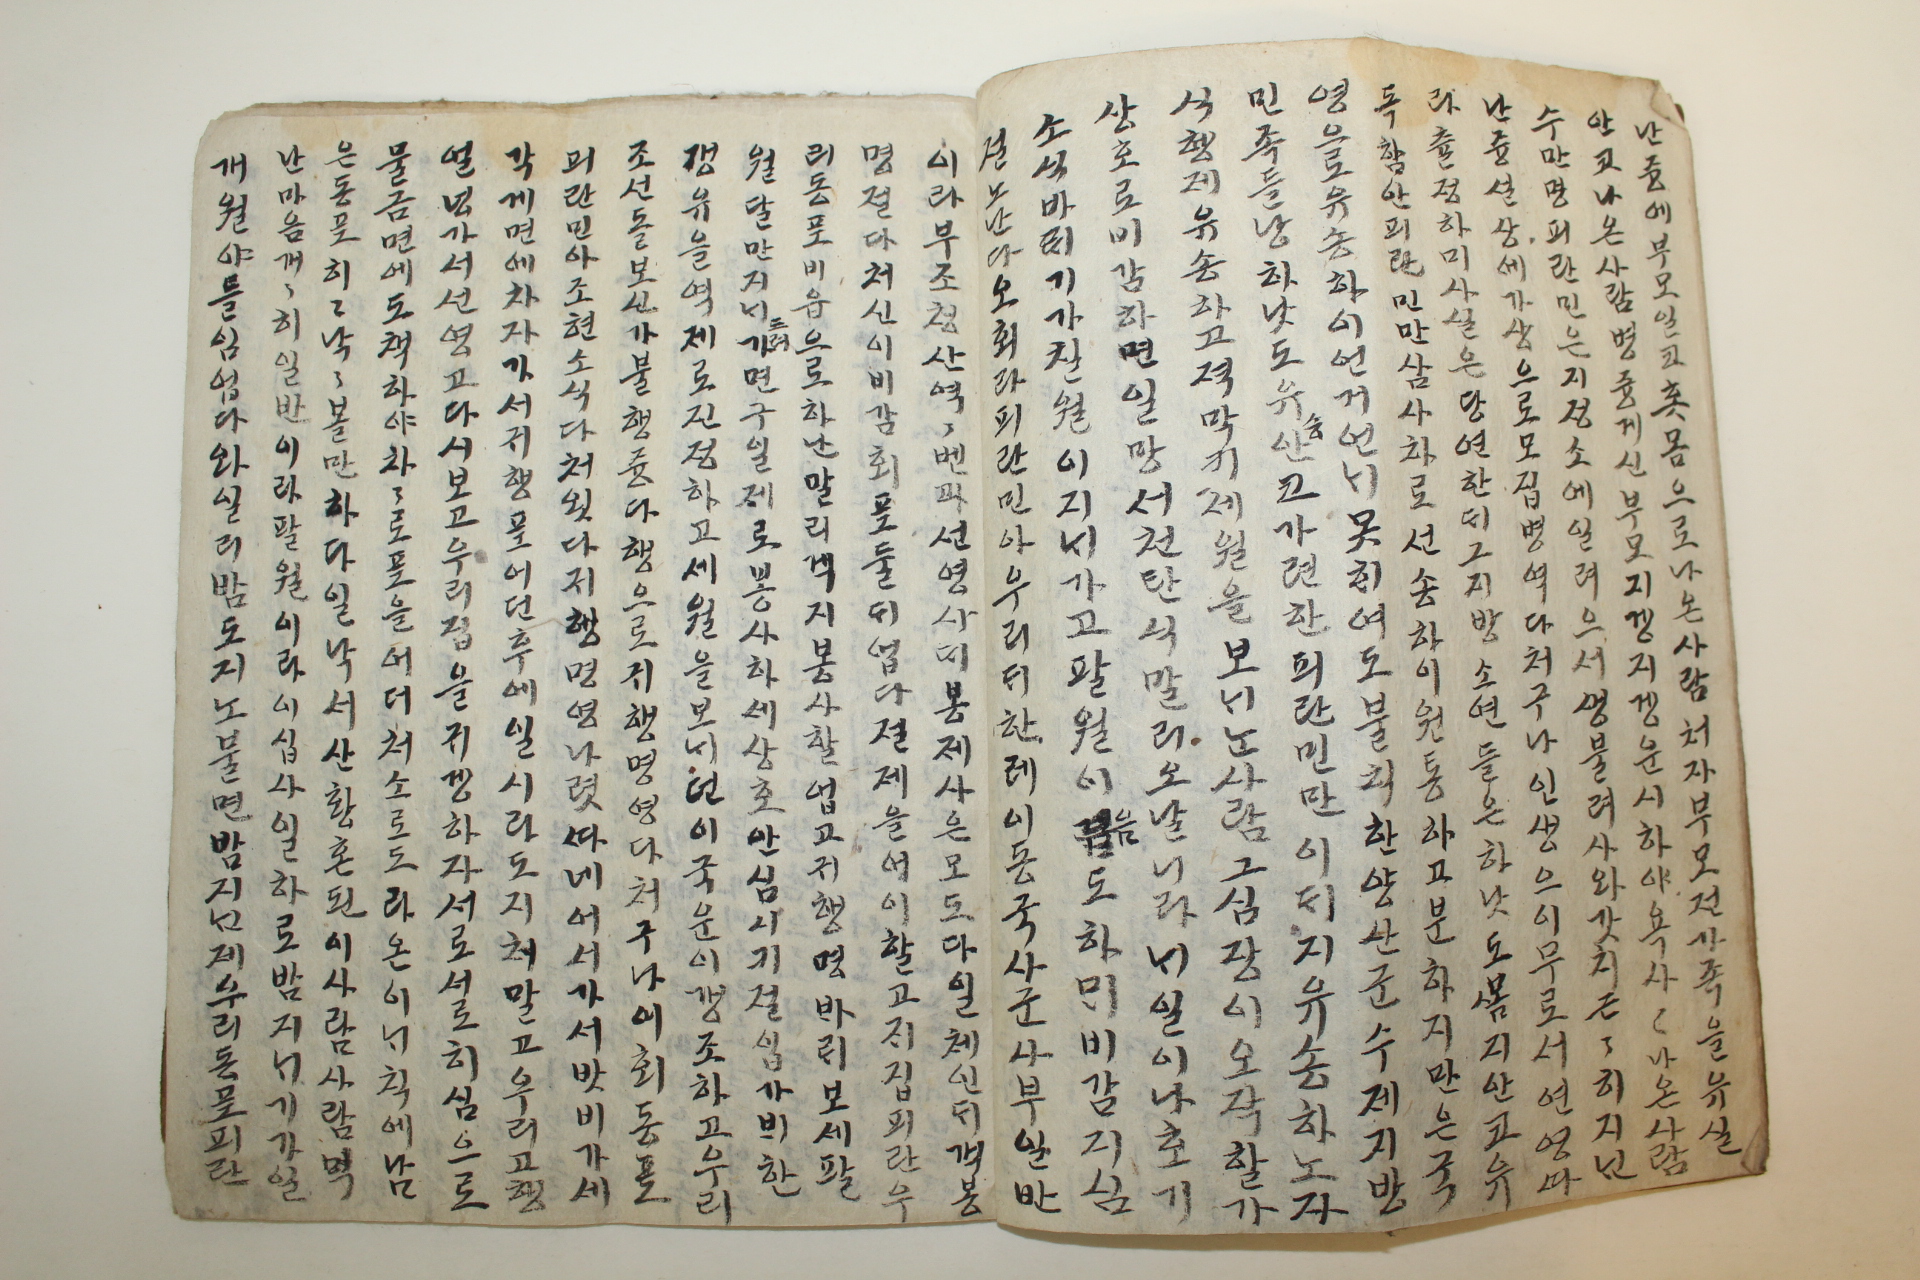 난중에부모일코혹몸으로나온사람처자부모전가족을유실
안코나온사람병중게신부모지겡지겡운시하야욕사〻나온사람
수만명피란민은지정소에일려으서생불려사와갓치근〻히지닌
난중설상에가상으로모집병역다처구나인생으이무로서연영따
라출정하미사실은당연한되그지방소연들은하낫도몸지안고유
독함안피란민만삼사차로선송하이원통하고분하지만은국
영을로유송하이언거언니못히여도불칙한양산군수제지방
민족들낭하낫도유송안코가련한피란민만이되지유송하노자
식행제유송하고적막키세월을보니는사람그심장이오작할가
상호로비감하면일망서천탄식말리오날니라니일이나호기
소식바뢰기가찬월이지니가고팔월이음도하미비감지심
절노난다오회라피란민아우리되한레이동국사군사부일반
이라부조청산역〻벤따선영사되봉제사은모도다일체인되객봉
명절다처신이비감회포둘되업다절제을어이할고지집피란우
리동포비유으로하난말리객지봉사할업고귀행명바릭보세팔
월달만지니가면구일제로뫵사하세상호안심시기절임가비한
갱유을역제로진정하고세월을보니던이국운이갱조하고우리
조선돌보신가불행중다행으로귀행명영다처구나이회동포
피란민아조현소식다처왓다지행명영나렷싸네어서가서밧비가세
각게면에차자가서귀행포어던후에일시라도지체말고우리고행
얼넝가서선영고다시보고우리집을귀겡하자서로서로히심으로
물금면에도책하야차〻로포을어더처소로도라온이니칙에남
은동포히〻낙〻볼만하다일낙서산황혼된이사람사람먹
난마음개〻히일반이라팔월이라이십사일하로밤지니기가일
개월야틀임업다와일리밤도지노불면밤지닌제우리동포피란